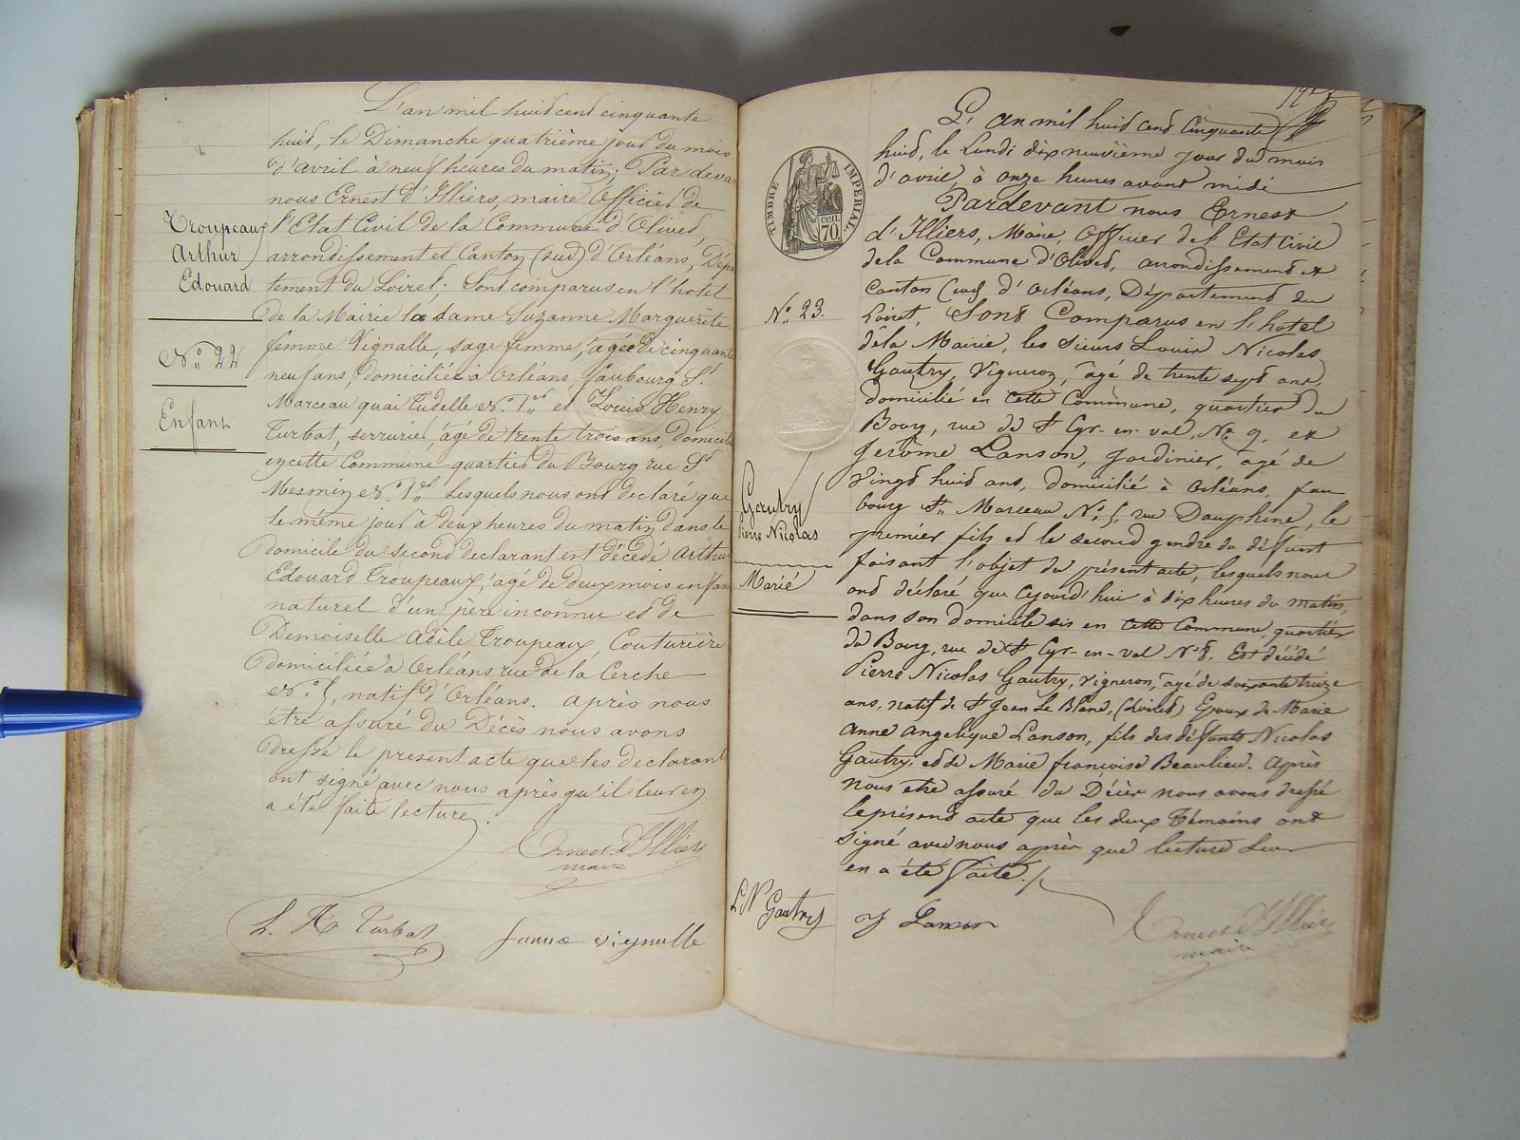 L'an mil huit cent cinquante
huit, le Dimanche quatrième jour du mois
d'avril à neuf heures du matin; Par deva
nous Ernest d'Illiers, maire Officier de
Troupeaux
Arthur
Edouard
l'Etat Civil de la Commune d'Olivet,
arrondissement et Canton (sud) d'Orléans, Dépa
tement du Loiret; Sont comparus en l'hotel
de la Mairie la dame Suzanne Marguerite
No 22
femme Vignalle, sage femme, agée de cinquante
neuf ans, domiciliée à Orléans, faubourg St
Marceau quai Tudelle No et Louis Henry
Enfant
Turbat, serrurier, agé de trente trois ans, domicilié
en cette Commune quartier du Bourg rue St
Mesmin No lesquels nous ont declaré que
le même jour à deux heures du matin, dans le
domicile du second declarant est décédé Arthur
Edouard Troupeaux, agé de deux mois enfant
naturel d'un père inconnu et de
Demoiselle Adèle Troupeaux, Couturière
domiciliée à Orléans rue de la Cerche
No 5, natif d'Orléans. après nous
être assuré du Décès nous avons
dressé le present acte que les declarant
ont signé avec nous après qu'il leur en
a été faite lecture.
Ernest d'Illiers
maire
L. H Turbat
femme vignalle
L'an mil huit cent cinquante
huit, le Lundi dix neuvième jour du mois
d'avril, à onze heures avant midi
Pardevant nous Ernest
d'Illiers, Maire, Officier de l'Etat Civil
dela Commune d'Olivet, arrondissement et
Canton (sud) d'Orléans, Département du
Loiret, Sont Comparus en l'hotel
dela Mairie, les Sieurs Louis Nicolas
Gautry, Vigneron, agé de trente sept ans,
domicilié en cette Commune, quartier du
Bourg, rue de St Cyr-en-val, No 9, et
Jerôme Lanson, Jardinier, agé de
vingt huit ans, domicilié à Orléans, fau
bourg St Marceau No 5, rue Dauphine, le
premier fils et le second gendre du défunt
faisant l'objet du présent acte, lesquels nous
ont déclaré que Cejourd'hui à dix heures du matin,
dans son domicile sis en cette Commune, quartier
du Bourg, rue de St Cyr-en-val No 8. Est décédé
Pierre Nicolas Gautry, vigneron, agé de soixante treize
ans, natif de St Jean Le Blanc, (Loiret) Epoux de Marie
Anne Angelique Lanson, fils des défunts Nicolas
Gautry, et de Marie françoise Beaulieu. Après
nous etre assuré du Décès nous avons dressé
leprésent acte que les deux Témoins ont
Signé avec nous après que lecture Leur
en a été faite.
TIMBRE IMPERIAL
CENT.
70
No 23.
Gautry
Pierre Nicolas
Marié
LN Gautry
J Lanson
Ernest d'Illiers
maire